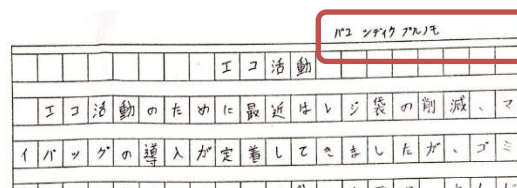 バユ シディク プルノモ
エコ活動
エコ活動のために最近はレジ袋の削減、マ
イバッグの導入が定着してきましたが、ゴミ